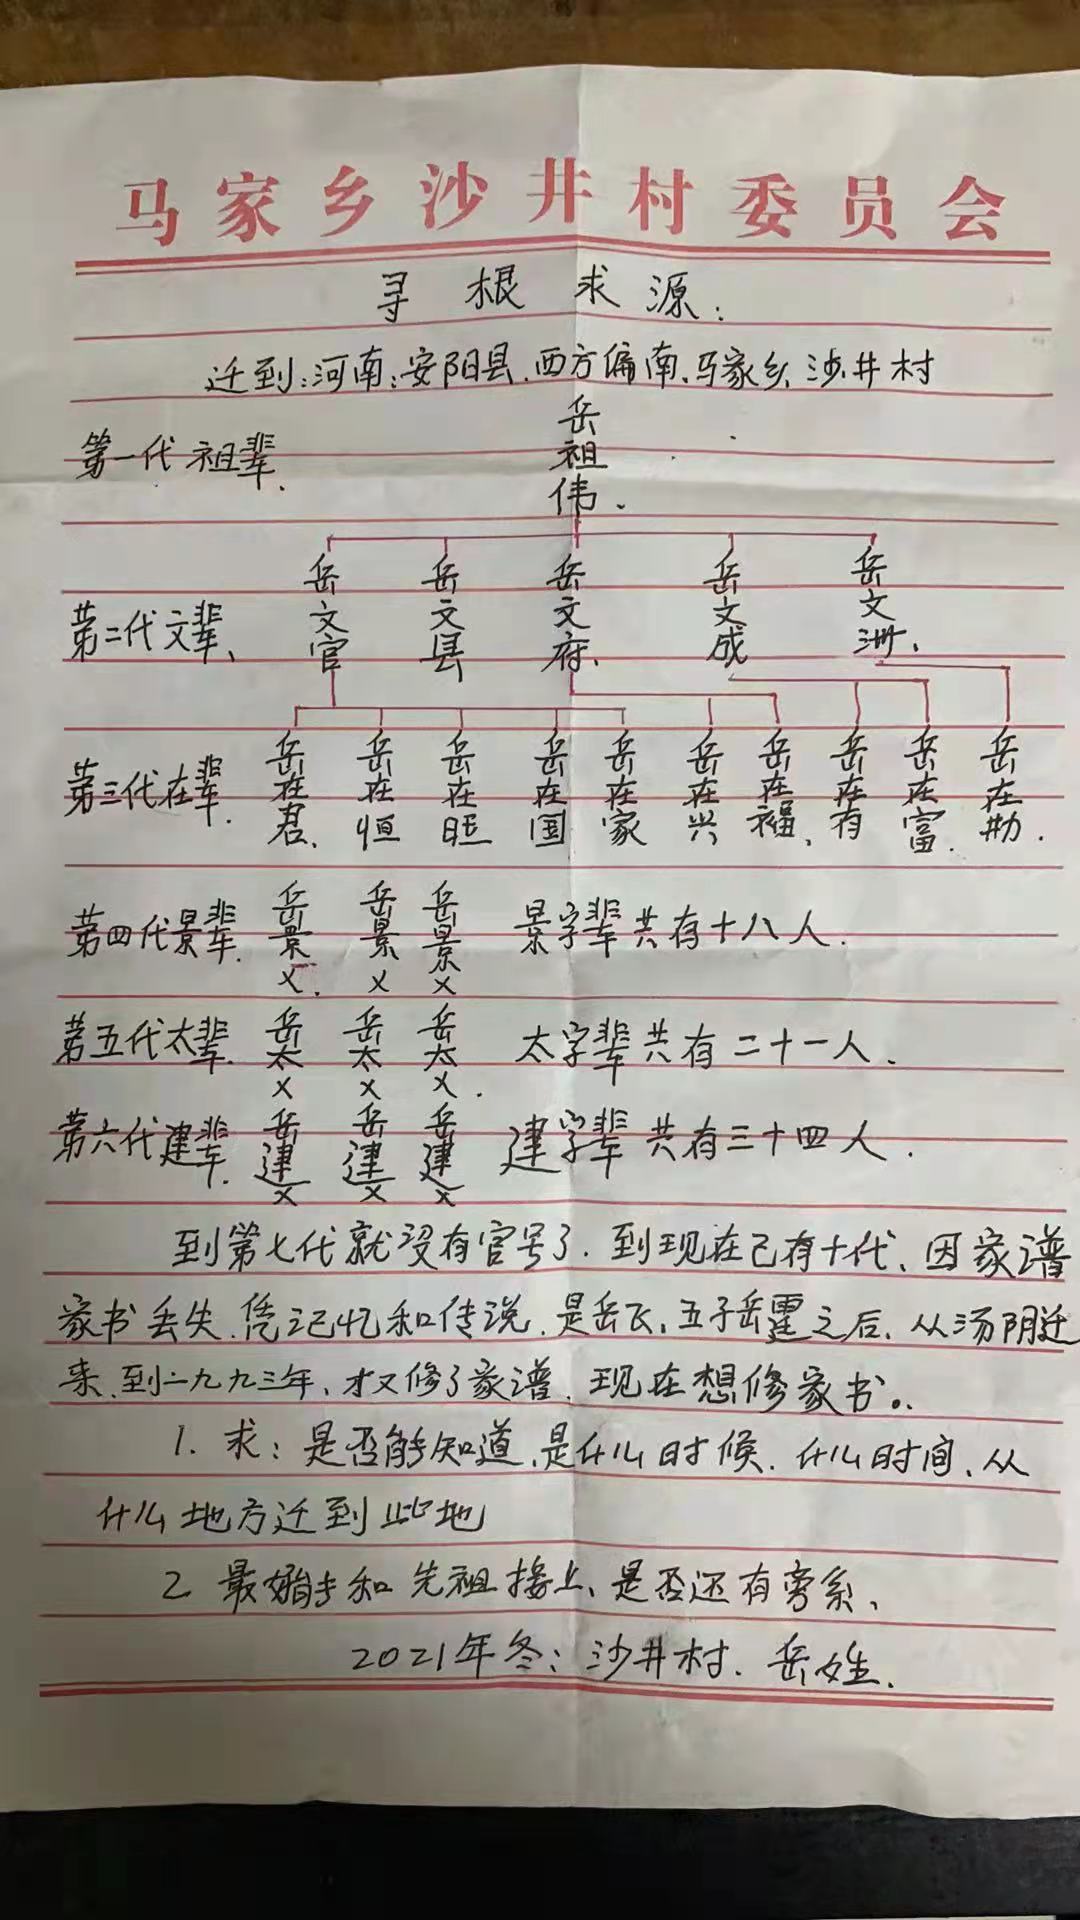 马家乡沙井村委员会
寻根求源:
迁到:河南:安阳县.西方偏南、马家乡、沙井村
第一代祖辈. 岳祖伟.
第二代文辈、 岳文官 岳文县 岳文府. 岳文成 岳文洲.
第三代在辈. 岳在君. 岳在恒 岳在旺 岳在国 岳在家 岳在兴 岳在福. 岳在有 岳在富. 岳在勋.
第四代景辈. 岳景X. 岳景X 岳景X 景字辈共有十八人.
第五代太辈. 岳太X 岳太X 岳太X. 太字辈共有二十一人.
第六代建辈. 岳建X 岳建X 岳建X 建字辈共有三十四人.
到第七代就没有官号了.到现在已有十代、因家谱
家书丢失.凭记忆和传说.是岳飞.五子岳霆之后.从汤阴迁
来.到一九九三年、才又修了家谱.现在想修家书。.
1.求:是否能知道.是什么时候.什么时间、从
什么地方迁到此地
2 最好能和先祖接上、是否还有旁系、
2021年冬:沙井村.岳姓.